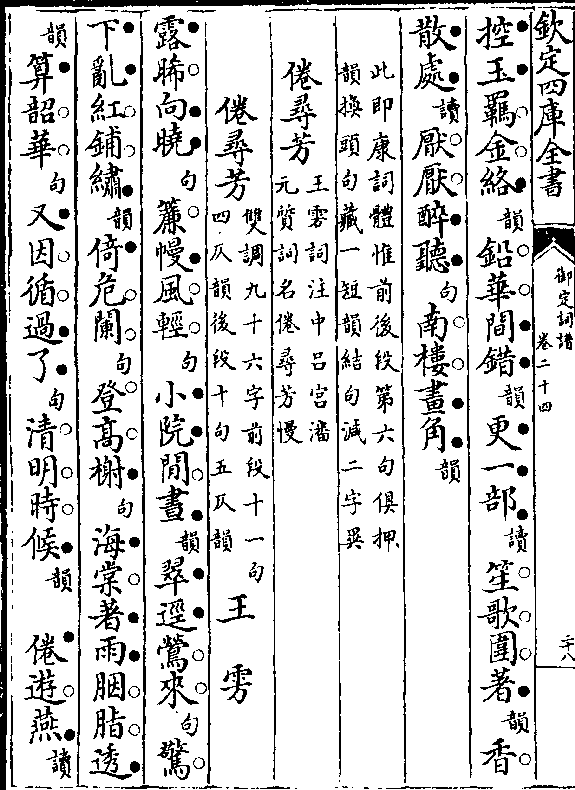 欽定四庫全書
御定詞譜
卷二十四
二十八
控玉羈金絡韻鉛華間錯韻更一部讀笙歌圍著韻香
散處讀厭厭醉聽句南樓畫角韻
此即康詞體惟前後段第六句俱押
韻換頭句藏一短韻結句減二字異
倦尋芳
王雱詞注中呂宮潘
元質詞名倦尋芳慢
倦尋芳
雙調九十六字前段十一句
四仄韻後段十句五仄韻
王雱
露晞向曉句簾幔風輕句小院閒晝韻翠逕鶯來句驚
下亂紅鋪繡韻倚危闌句登高榭句海棠著雨胭脂透
韻算韶華句又因循過了句清明時候韻 倦遊燕讀